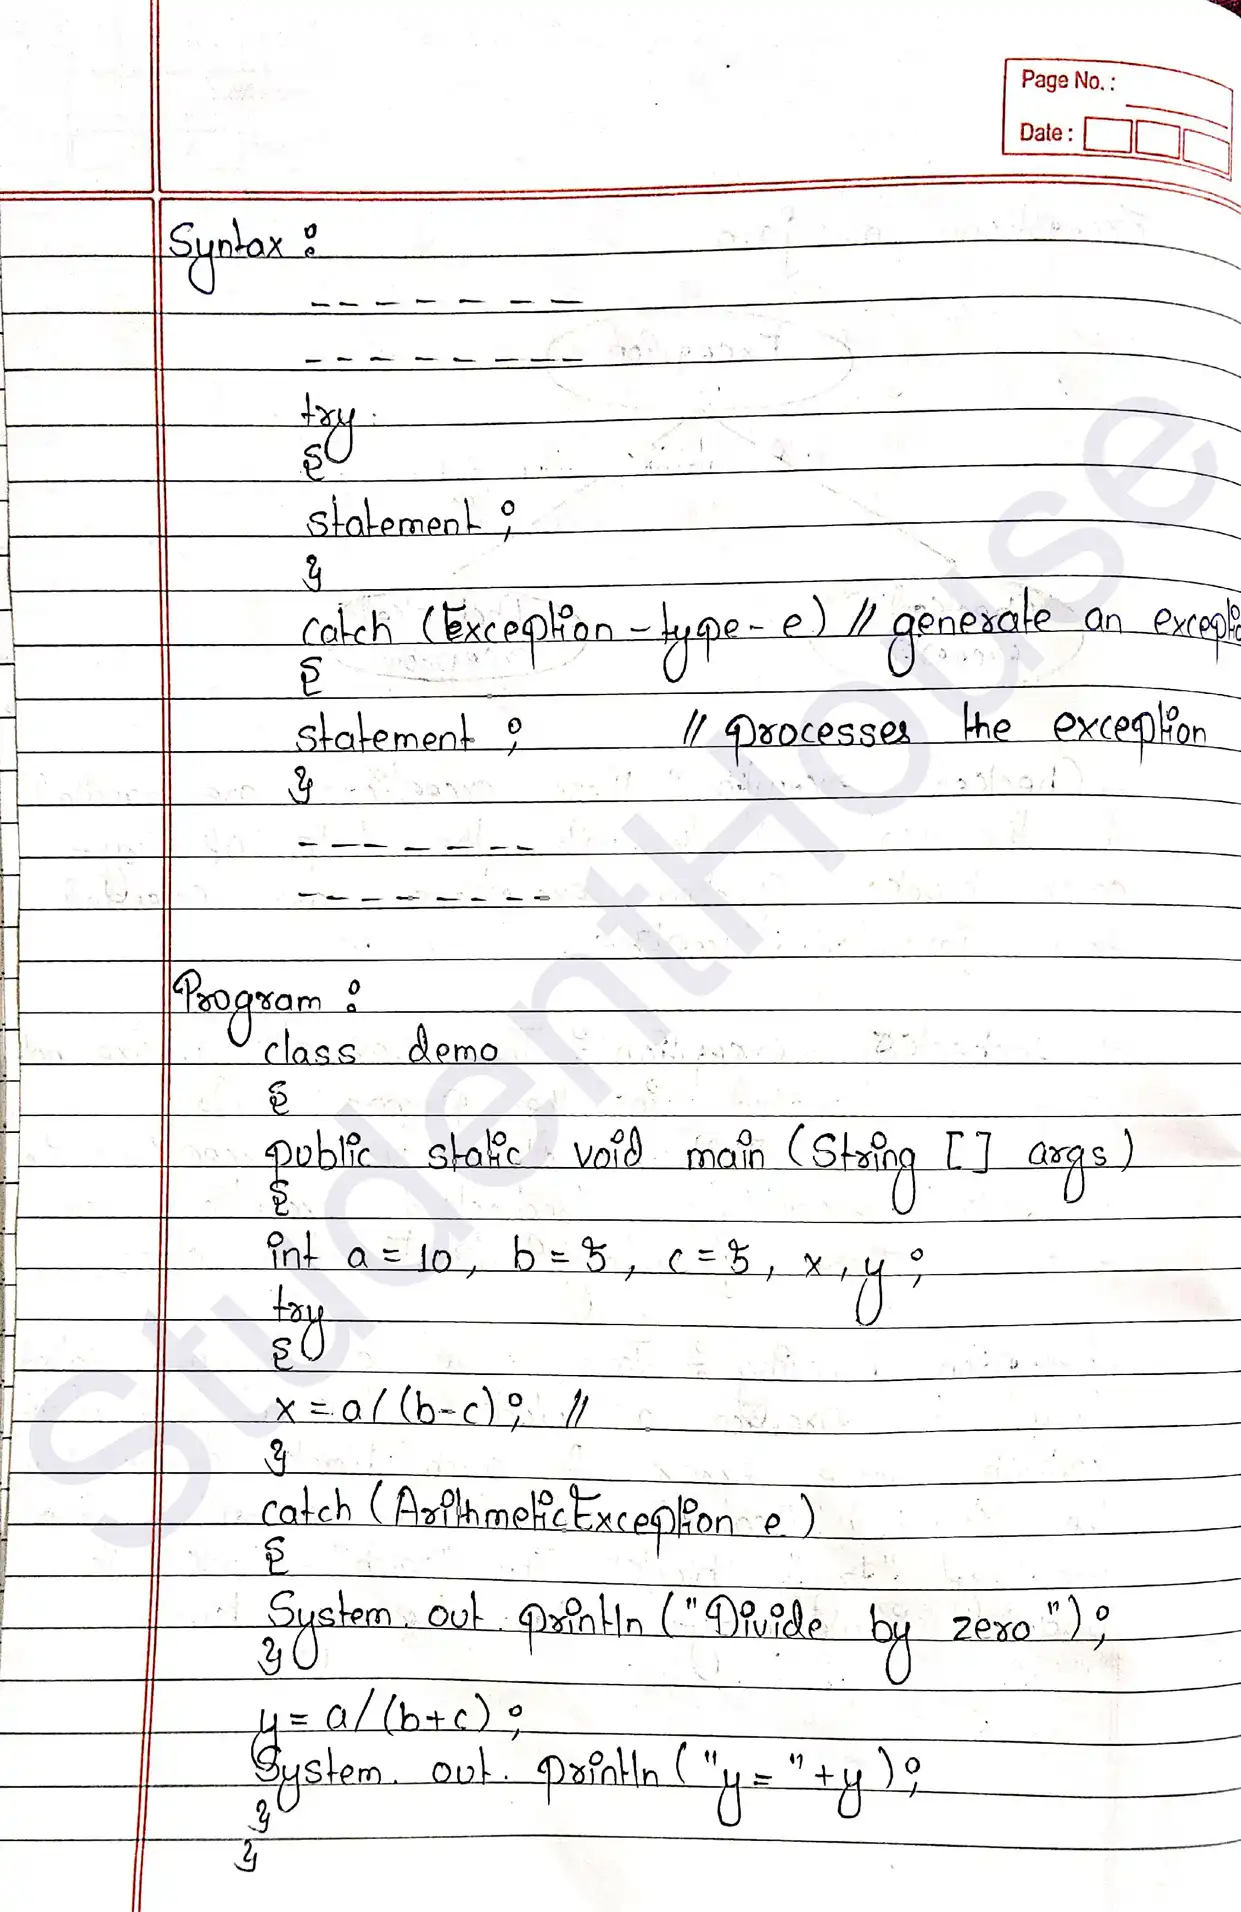 Page No. :
Date :
Syntax :
- - - - - - -
- - - - - - - -
try
{
statement ;
}
catch (Exception - type - e) // generate an exceptio
{
statement ; // processes the exception
}
- - - - - - -
- - - - - - - -
Program :
class demo
{
public static void main (String [] args)
{
int a = 10, b = 5, c = 5, x, y ;
try
{
x = a / (b-c) ; //
}
catch (ArithmeticException e)
{
System. out. println ("Divide by zero") ;
}
y = a / (b+c) ;
System. out. println ("y = "+y) ;
}
}
StudentHouse